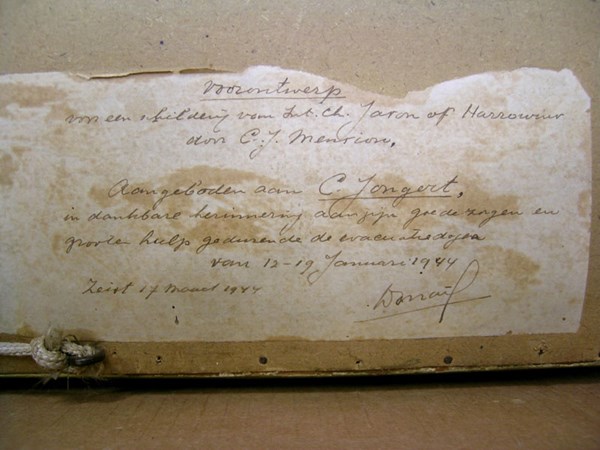 Voorontwerp
voor een schilderij van Int. Ch. Jason of Harrowins
door C. J. Mension.
Aangeboden aan C. Jongert,
in dankbare herinnering aan zijn goede zorgen en
grooten hulp gedurende de evacuatiedagen
van 12-19 Januari 1944
Zeist 17 Maart 1944